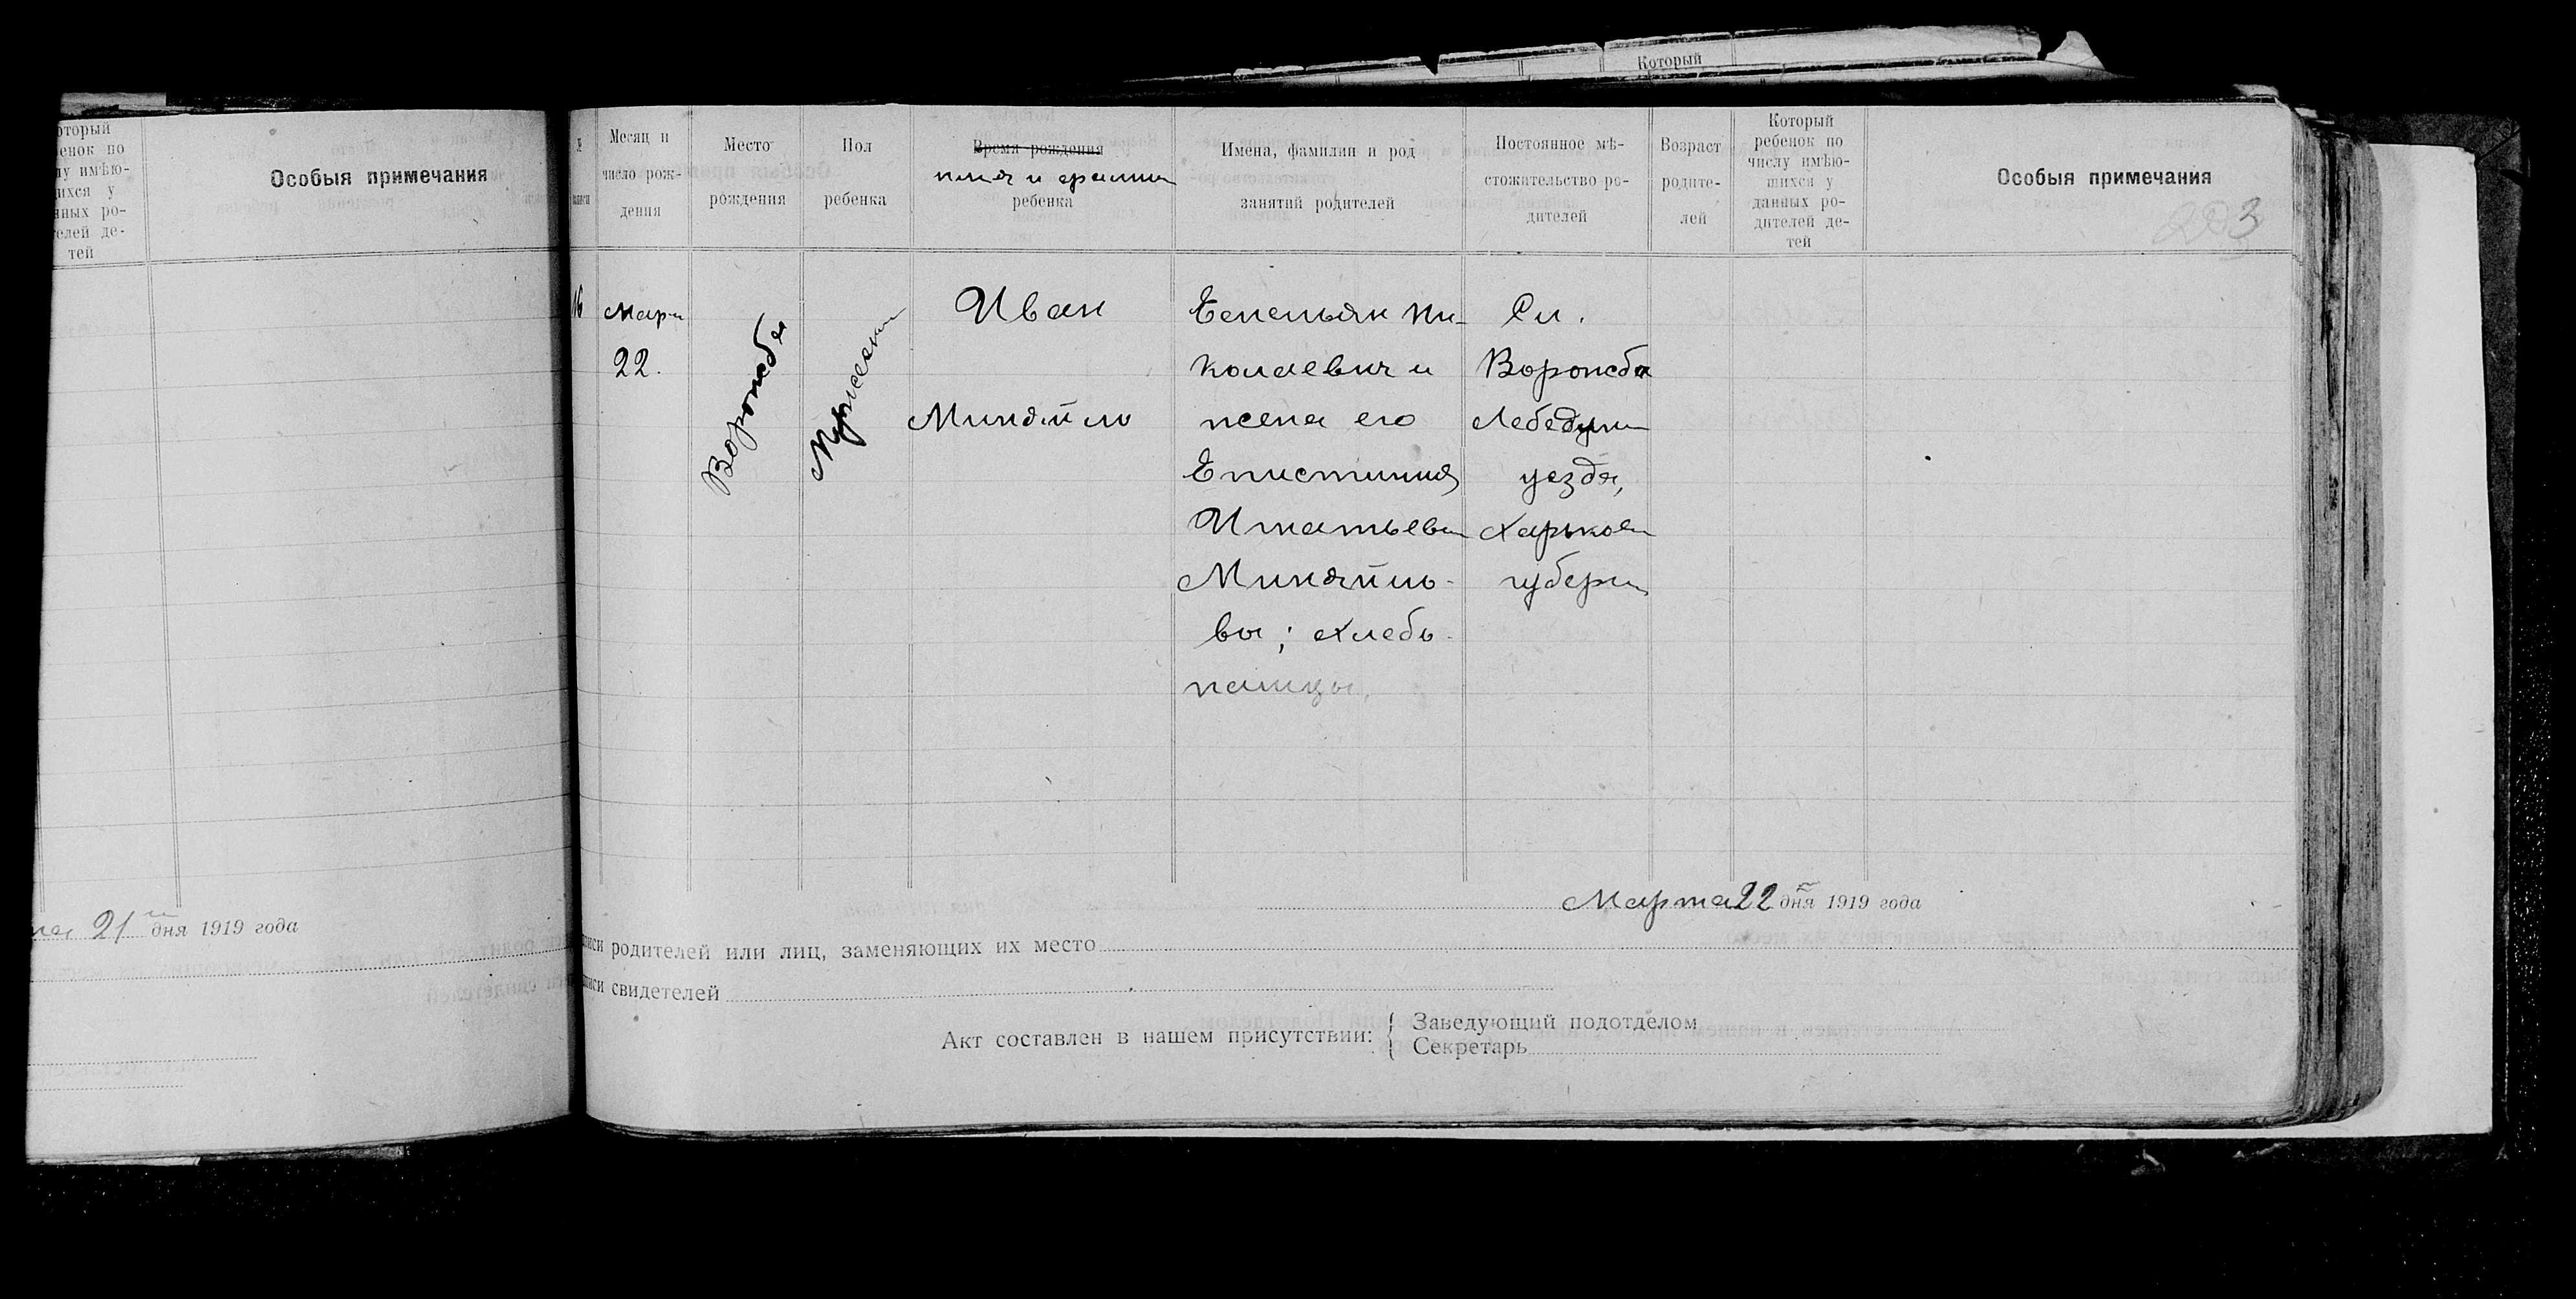 Который
оторый
енок по
лу имѣю-
ихся у
нных ро-
телей де-
тей
Особыя примечания
21 дня 1919 года
№
Месяц и
число рож-
дения
Место
рождения
Пол
ребенка
Время рождения
имя и фамилия
ребенка
Имена, фамилии и род
занятий родителей
Постоянное мѣ-
стожительство ро-
дителей
Возраст
родите-
лей
Который
ребенок по
числу имѣю-
шихся у
данных ро-
дителей де-
тей
Особыя примечания
203
16
Март
22.
Ворожба
Мужеский
Иван
Миняйло
Емельян Ни-
колаевич и
жена его
Епистиния
Игнатьевна
Миняйло-
вы; хлебо-
пашцы.
Сл.
Ворожба
Лебедин
уезда,
Харьков
губерн
Марта 22 дня 1919 года
писи родителей или лиц, заменяющих их место
писи свидетелей
Акт составлен в нашем присутствии:
Заведующий подотделом
Секретарь